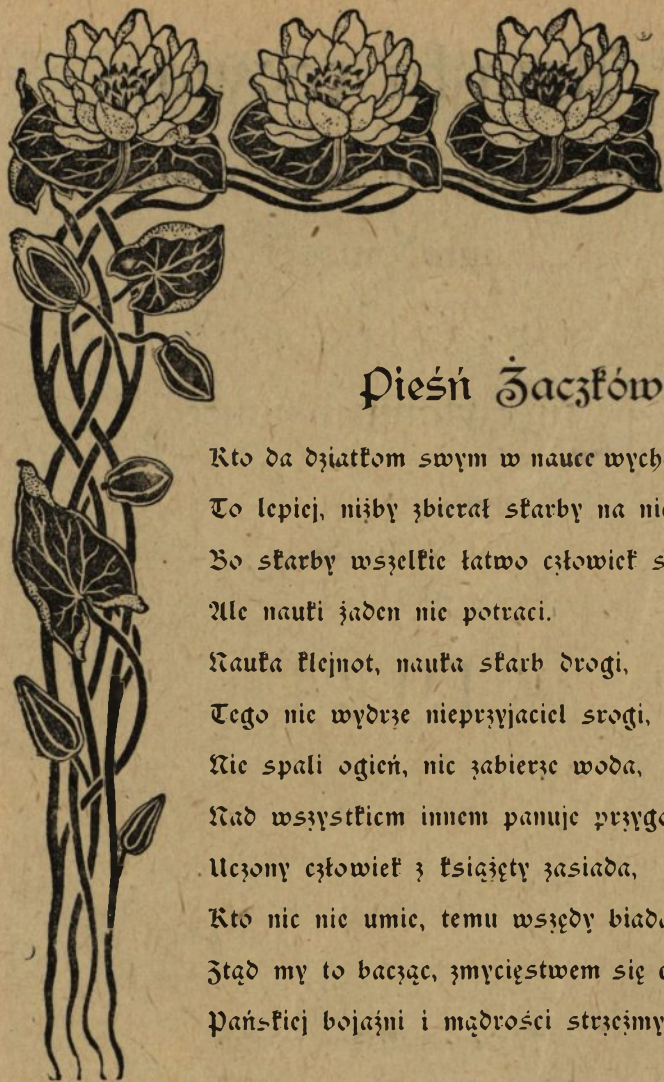 Pieśń Żaczków
Kto da dziatkom swym w nauce wych
To lepiej, niżby zbierał skarby na nie
Bo skarby wszelkie łatwo człowiek s
Ale nauki żaden nie potraci.
Nauka klejnot, nauka skarb drogi,
Tego nie wydrze nieprzyjaciel srogi,
Nie spali ogień, nie zabierze woda,
Nad wszystkiem innem panuje przygo
Uczony człowiek z książęty zasiada,
Kto nic nie umie, temu wszędy biada
Ztąd my to bacząc, zmycięstwem się
Pańskiej bojaźni i mądrości strzeżmy